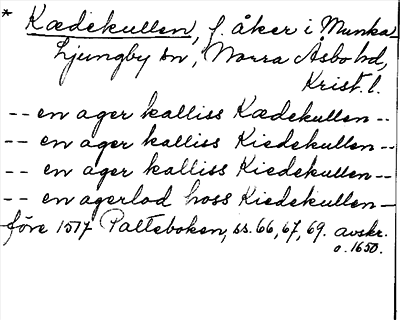 * Kædekullen, f. åker i Munka
Ljungby sn, Norra Åsbo hd,
Krist. l.
-- en ager kalliss Kædekullen --
-- en ager kalliss Kiedekullen --
-- en ager kalliss Kiedekullen --
-- en agerlod hoss Kiedekullen --
före 1517 Palteboken, ss. 66, 67, 69. avskr.
o. 1650.